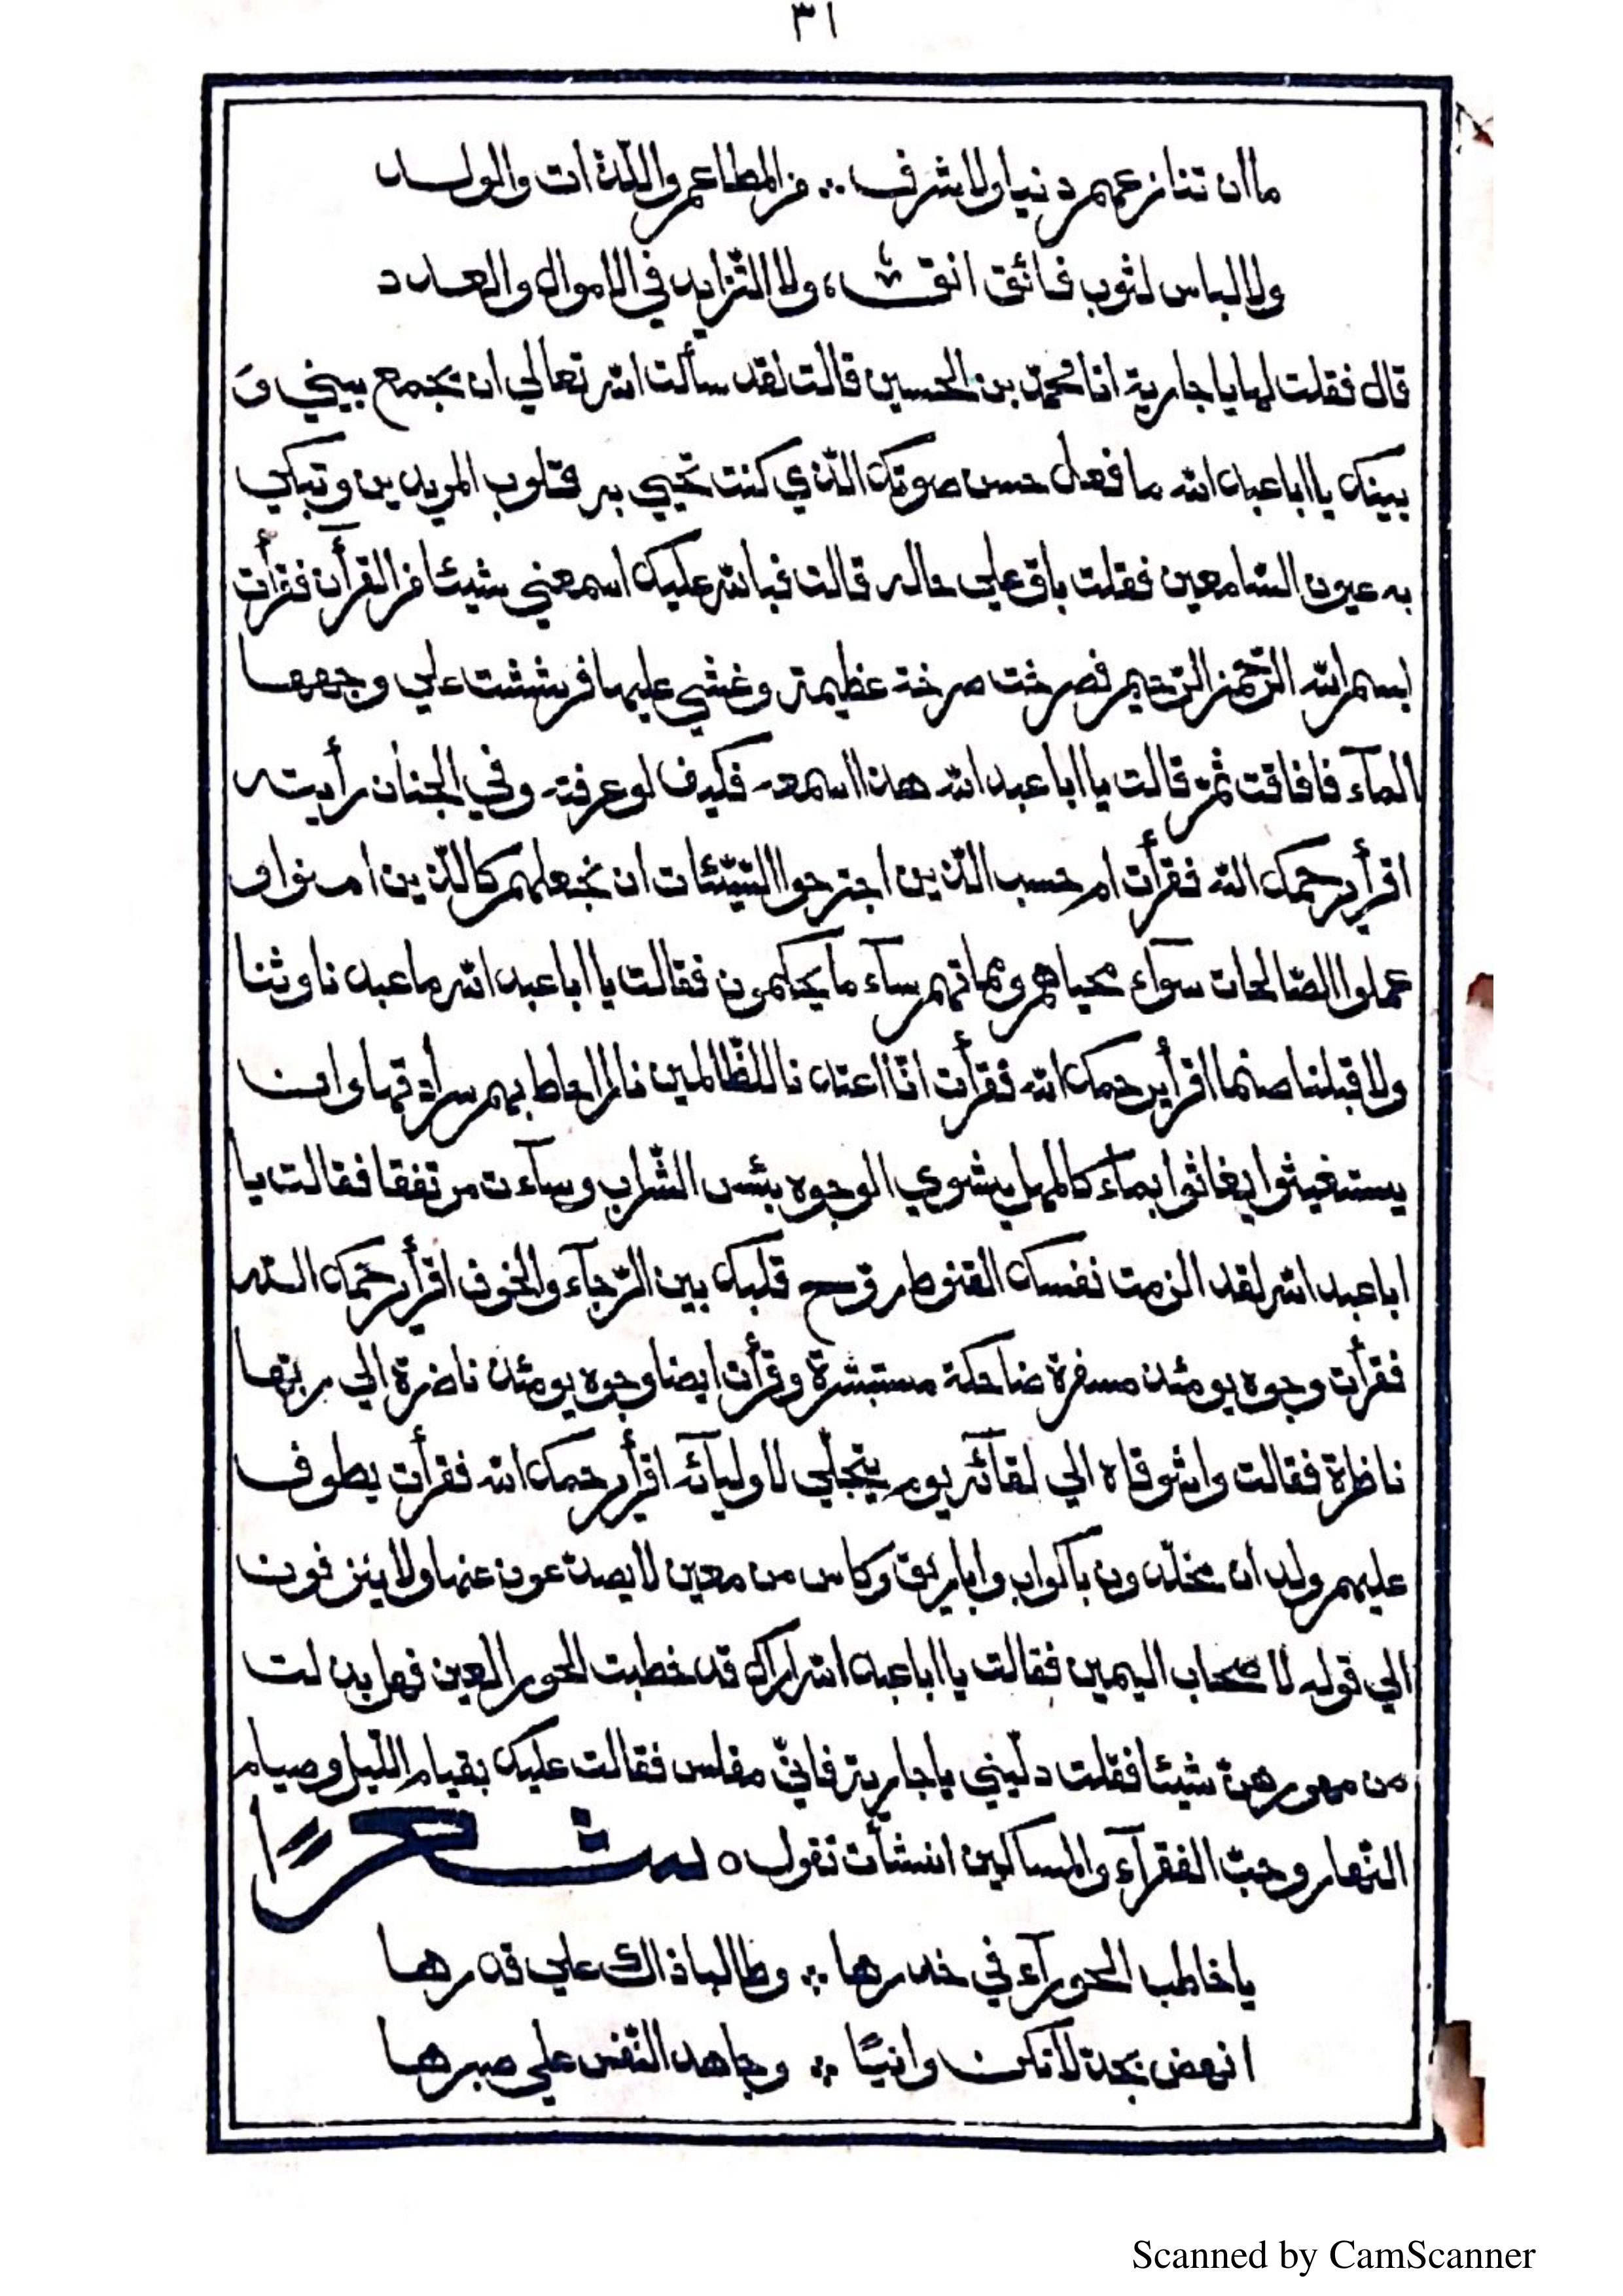 ٣١
ما ان تنازعهم دنيا ولا شرف ∴ من المطاعم واللّذات والولد
ولا لباس لثوب فائق انق ، ولا التّزايد في الاموال والعدد
قال فقلت لها يا جارية انا محمّد بن الحسين قالت لقد سألت الله تعالي ان يجمع بيني وَ
بينك يا ابا عبد الله ما فعل حسن صوتك الّذي كنت تحيي به قلوب المريدين وتبكي
به عيون السّامعين فقلت باق علي حاله قالت فبالله عليك اسمعني شيئا من القرآن فقرأت
بسم الله الرّحمن الرّحيم فصرخت صرخة عظيمة وغشي عليها فرششت علي وجهها
المآء فافاقت ثمّ قالت يا ابا عبد الله هذا اسمعه فكيف لو عرفته وفي الجنان رأيته
اقرأ يرحمك الله فقرأت ام حسب الّذين اجترحوا السّيّئات ان نجعلهم كالّذين امنوا و
عملوا الصّالحات سوآء محياهم ومماتهم سآء ما يحكمون فقالت يا ابا عبد الله ما عبدنا وثنا
ولا قبلنا صنما اقرأ يرحمك الله فقرأت انّا اعتدنا للظّالمين نارا احاط بهم سرادقها وان
يستغيثوا يغاثوا بمآء كالمهل يشوي الوجوه بئس الشّراب وسآءت مرتفقا فقالت يا
ابا عبد الله لقد الزمت نفسك القنوط روّح قلبك بين الرّجآء والخوف اقرأ يرحمك الله
فقرأت وجوه يومئذ مسفرة ضاحكة مستبشرة وقرأت ايضا وجوه يومئذ ناضرة الي ربّها
ناظرة فقالت واشوقاه الي لقآئه يوم يتجلّي لاوليآئه اقرأ يرحمك الله فقرأت يطوف
عليهم ولدان مخلّدون باكواب واباريق وكاس من معين لا يصدّعون عنها ولا ينزفون
الي قوله لاصحاب اليمين فقالت يا ابا عبد الله اراك قد خطبت الحور العين فهل بذلت
من مهورهنّ شيئا فقلت دلّيني يا جارية فانّي مفلس فقالت عليك بقيام اللّيل وصيام
النّهار وحبّ الفقرآء والمساكين انشأت تقول ٥ شعرًا
يا خاطب الحورآء في خدرها ∴ وطالبا ذاك علي قدرها
انهض بجدّ لا تكن وانيًا ∴ وجاهد النّفس علي صبرها
Scanned by CamScanner